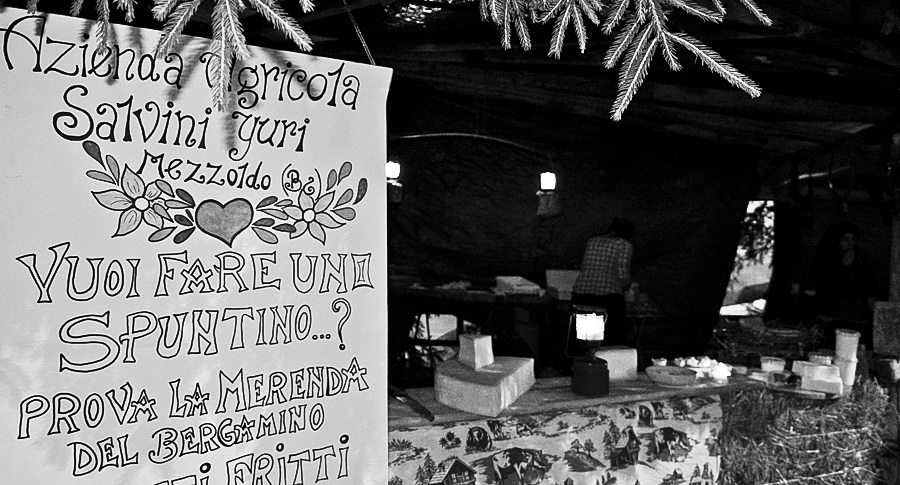 Azienda Agricola
Salvini Yuri
Mezzoldo (B)
VUOI FARE UNO
SPUNTINO...?
PROVA LA MERENDA
DEL BERGAMINO
FRITTI